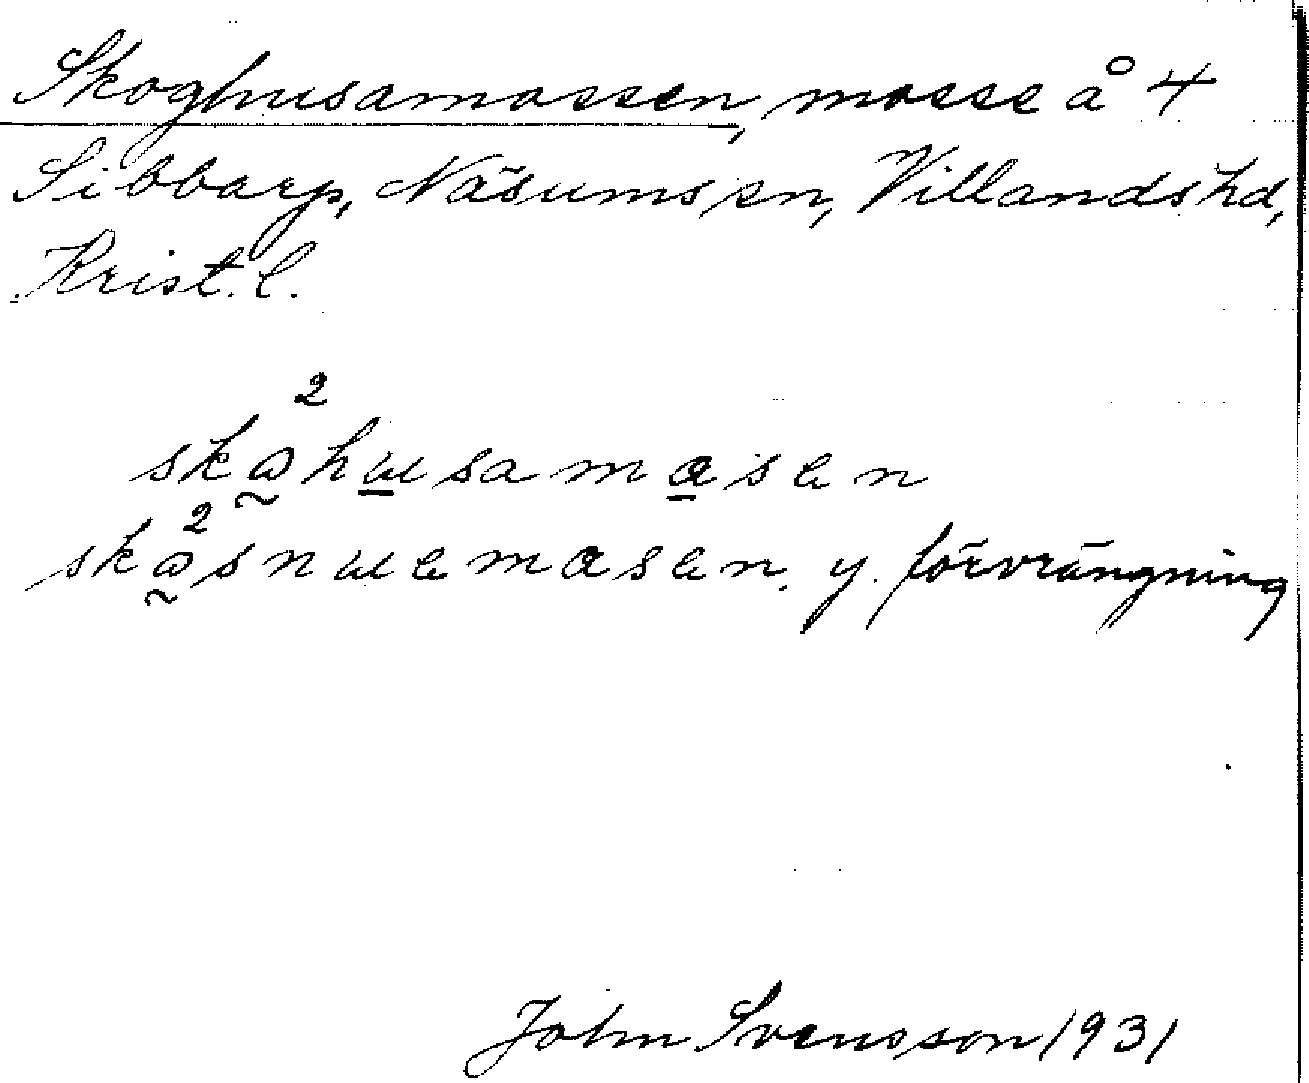 Skoghusamossen, mosse å 4
Sibbarp, Näsums sn, Villands hd,
Krist. l.
2
skɷhusamɑsen
2
skɷsnuemɑsen. y. förvrängning
John Svensson 1931